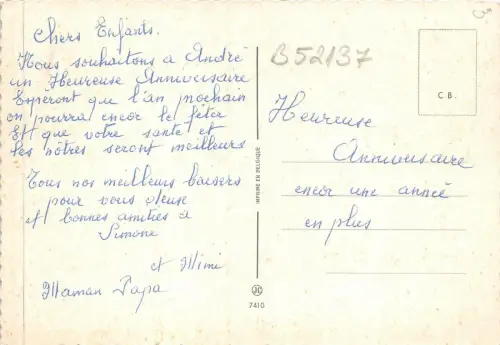 Chers Enfants.
Nous souhaitons a André
un Heureuse Anniversaire
Espèront que l'an prochain
on pourra encor le fêter
Et que votre santé et
les nôtres seront meilleurs
Tous nos meilleurs baisers
pour vous deuse
et bonnes amitiés a
Simone
et Mimi
Maman Papa
B52137
C B.
Heureuse
Anniversaire
encor une année
en plus
IMPRIMÉ EN BELGIQUE
7410